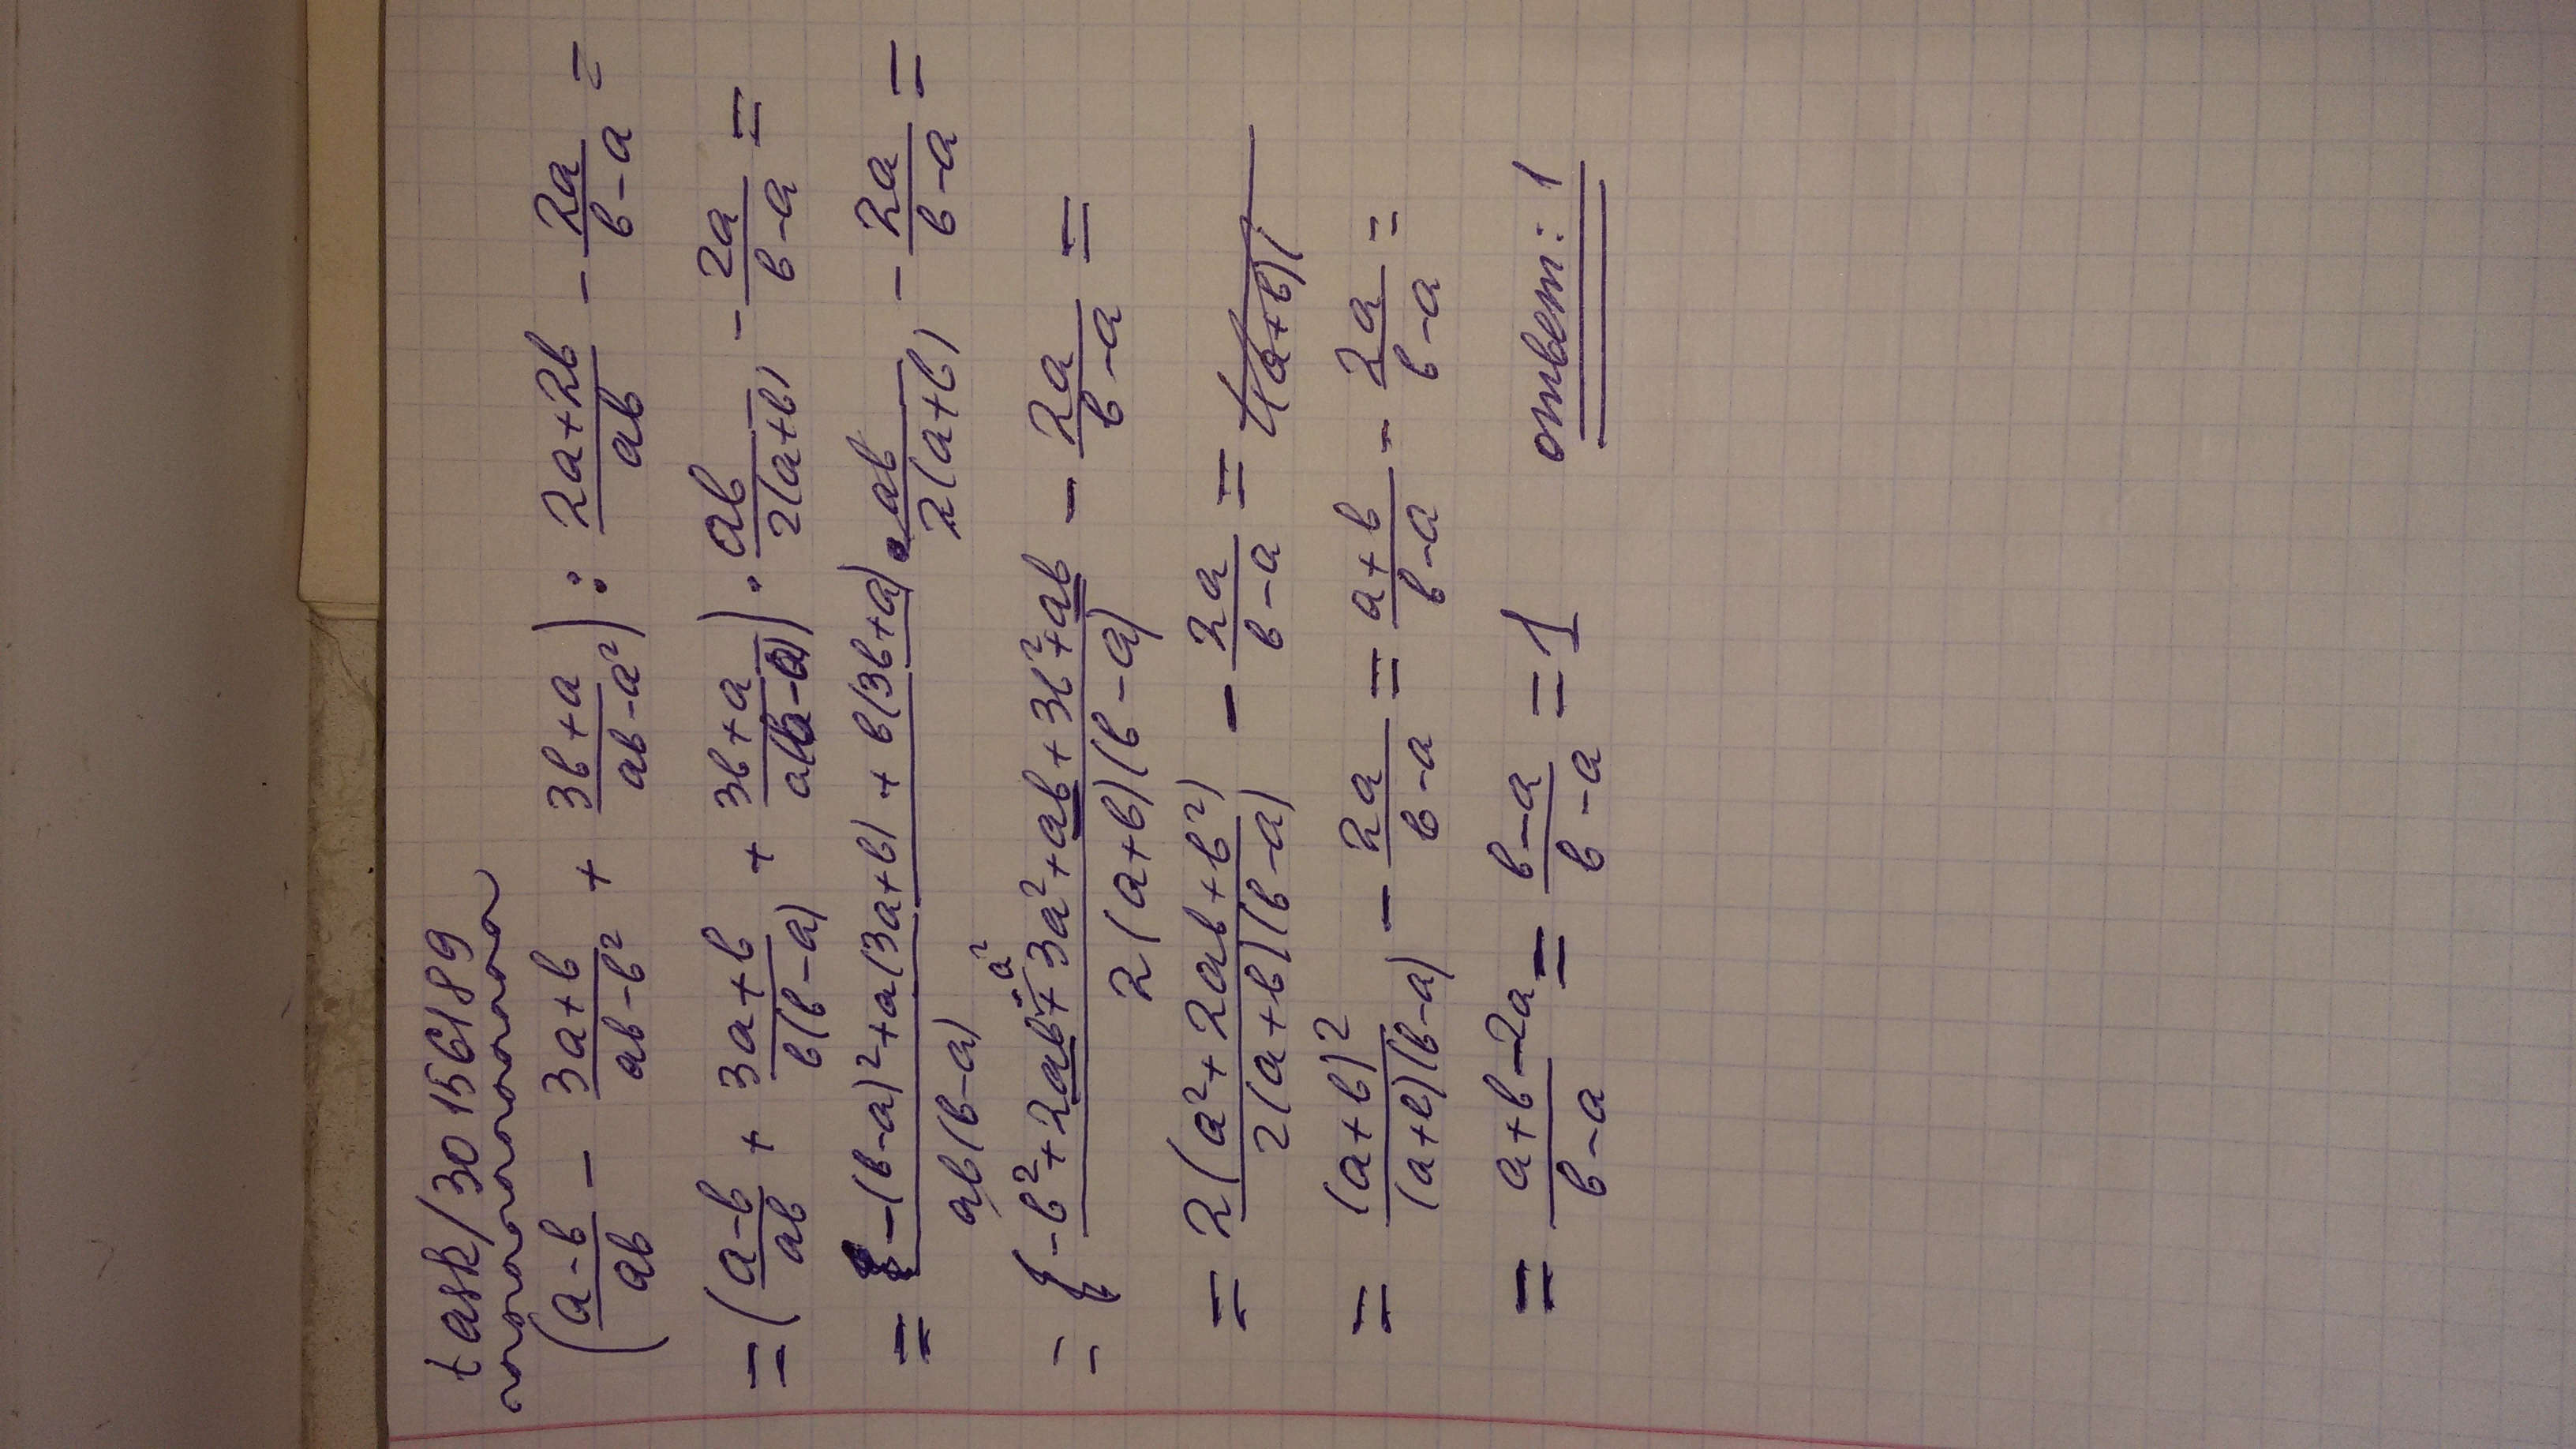 task/30156189
((a-b)/ab - (3a+b)/(ab-b²) + (3b+a)/(ab-a²)) : (2a+2b)/ab - 2a/(b-a) =
= ((a-b)/ab + (3a+b)/(b(b-a)) + (3b+a)/(a(b-a))) · ab/(2(a+b)) - 2a/(b-a) =
= (-(b-a)²+a(3a+b)+b(3b+a))/(ab(b-a)) · ab/(2(a+b)) - 2a/(b-a) =
= (-b²+2ab-a²+3a²+ab+3b²+ab)/(2(a+b)(b-a)) - 2a/(b-a) =
= 2(a²+2ab+b²)/(2(a+b)(b-a)) - 2a/(b-a) =
= (a+b)²/((a+b)(b-a)) - 2a/(b-a) = (a+b)/(b-a) - 2a/(b-a) =
= (a+b-2a)/(b-a) = (b-a)/(b-a) = 1 ответ: 1